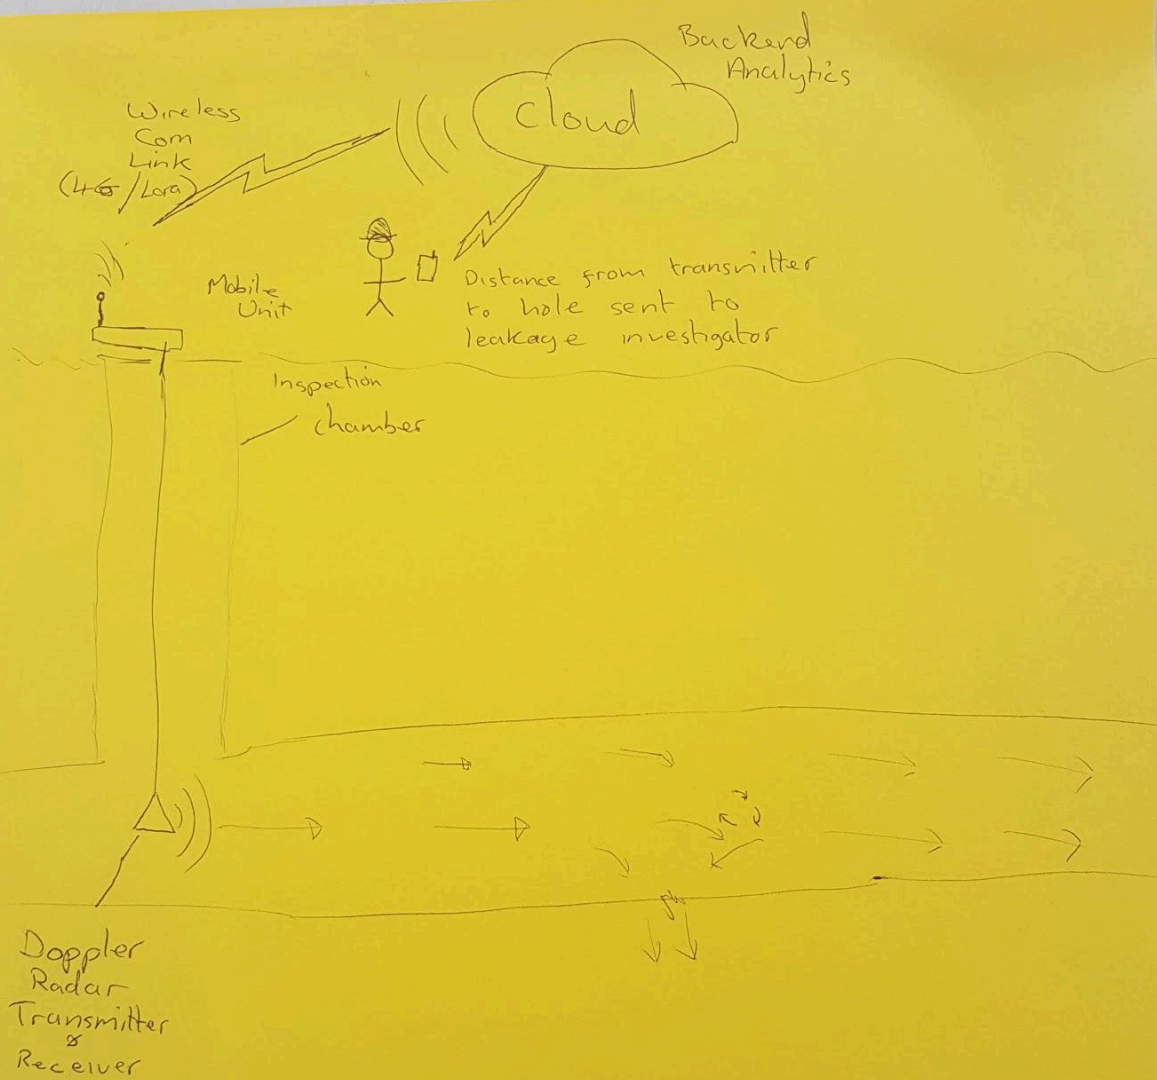 Backend
Analytics
Cloud
Wireless
Com
Link
(4G/Lora)
Mobile
Unit
Distance from transmitter
to hole sent to
leakage investigator
Inspection
chamber
Doppler
Radar
Transmitter
&
Receiver